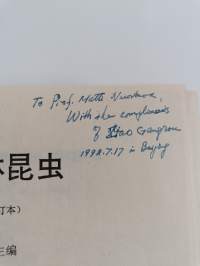 To Prof. Matti Nuorteva,
With the compliments
of Xiao Gangrou
1992.7.17 in Beijing
林昆虫
订本)
主编